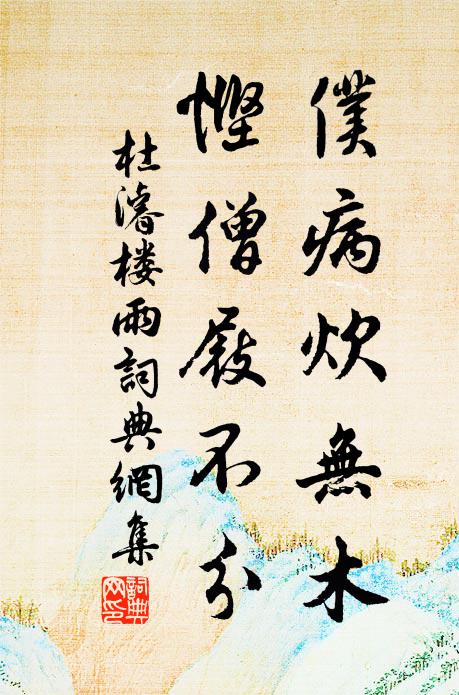 僕病炊無木
慳僧屐不分
杜濬樓雨詞典網集
詞典